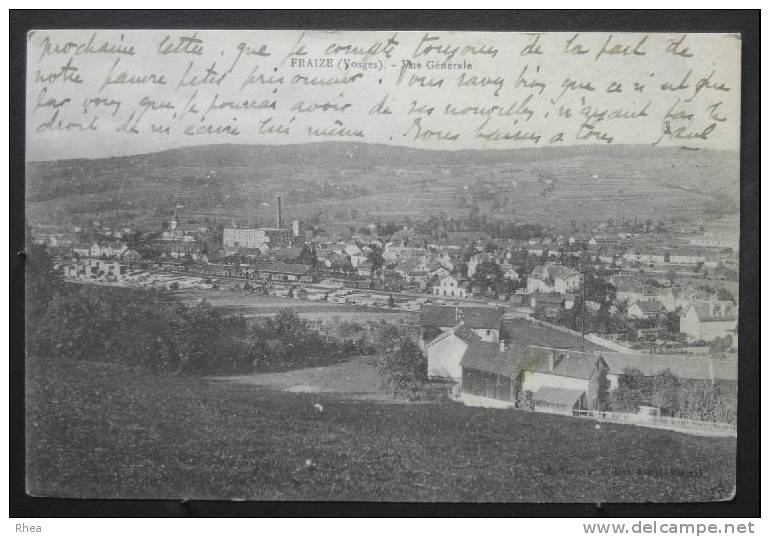 prochaine lettre, que je compte toujours de la part de
FRAIZE (Vosges). - Vue Générale
notre pauvre petit prisonnier. Vous savez bien que ce n'est que
par vous que je pourrais avoir de ses nouvelles, n'ayant pas le
droit de m'écrire lui même. Bons baisers à tous Paul
Rhea
http://www.delcampe.net